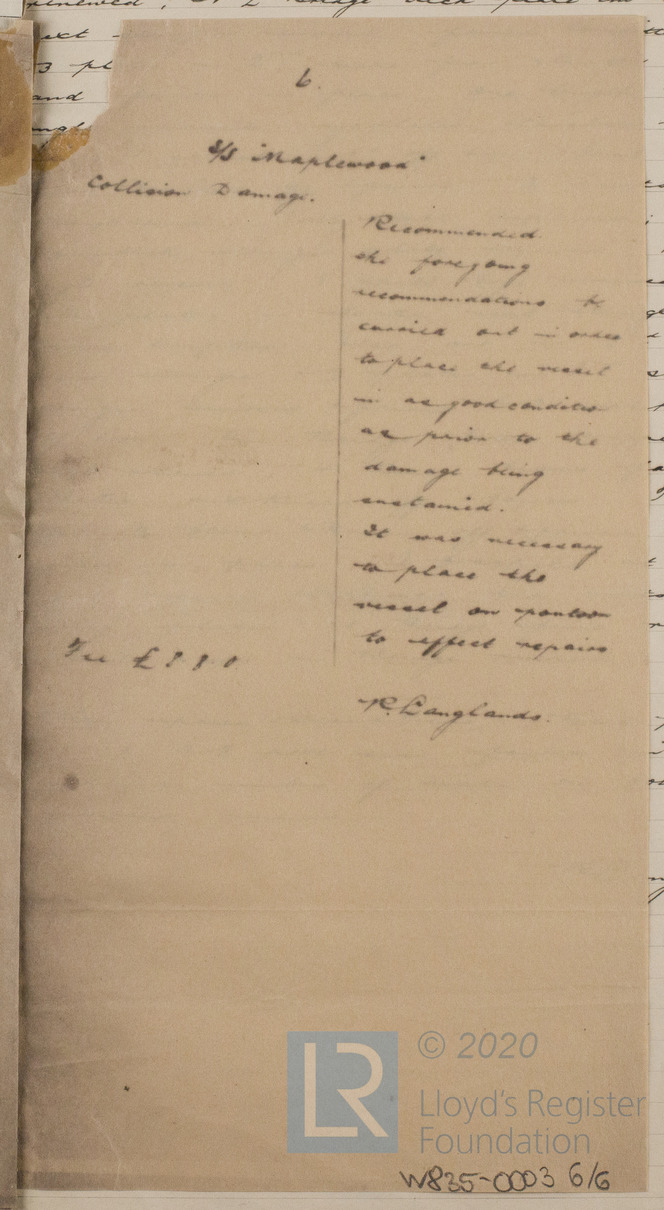 renewed,
ext
3 pl
and
6.
S/S "Maplewood"
Collision Damage.
Recommended
the foregoing
recommendations be
carried out in order
to place the vessel
in as good condition
as prior to the
damage being
sustained.
It was necessary
to place the
vessel on pontoon
to effect repairs
Fee £
R. Langlands.
LR
© 2020
Lloyd's Register
Foundation
W835-0003 6/6